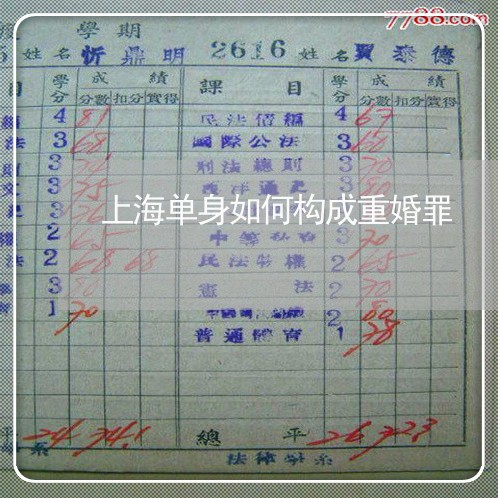 7788.com
學期
5 姓名 忻鼎明 2616 姓名 賈泰德
目 學分 成績 課目 學分 成績
分數 扣分 實得 分數 扣分 實得
4 81 民法債編 4 67
法 3 68 國際公法 3 60
3 刑法總則 3 70
3 75 西洋通史 3 80
上海单身如何构成重婚罪
2 65 3 70
法 2 68 68 民法物權 2 65
3 80 憲法 2 70
1 70 2 80
普通體育 1 78
平 24 74.1 總平 26 72.3
系 法律學系